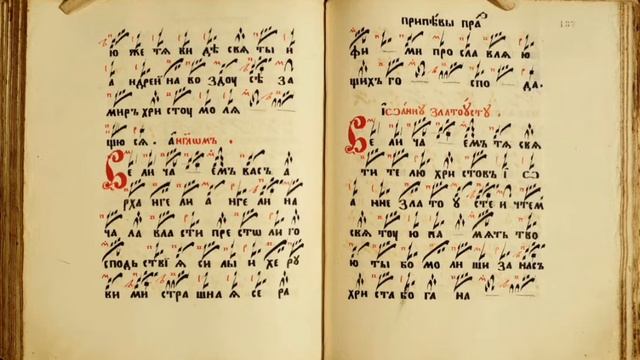 ю же тѧ ви дѣ свѧ ты и
а ндрей на во здоу сѣ за
миръ христоу молѧ
щю сѧ. а҆нг҃лѡмъ.
Ве ли ча емъ васъ а
рха нге ли а нге ли на
ча ла вла сти пре стѡ ли го
сподь ствїѧ си лы и хе ру
ви ми стра шна ѧ се ра
припѣвы пра
фи ми про сла влѧ ю
щихъ го спо да.
іѡанну златоусту.
Ве ли ча емъ тѧ свѧ
ти те лю христовъ і ѡ
а нне злато у сте и чтем
свѧ тоу ю па мѧть тво
ю ты бо мо ли ши за насъ
христа бо га на